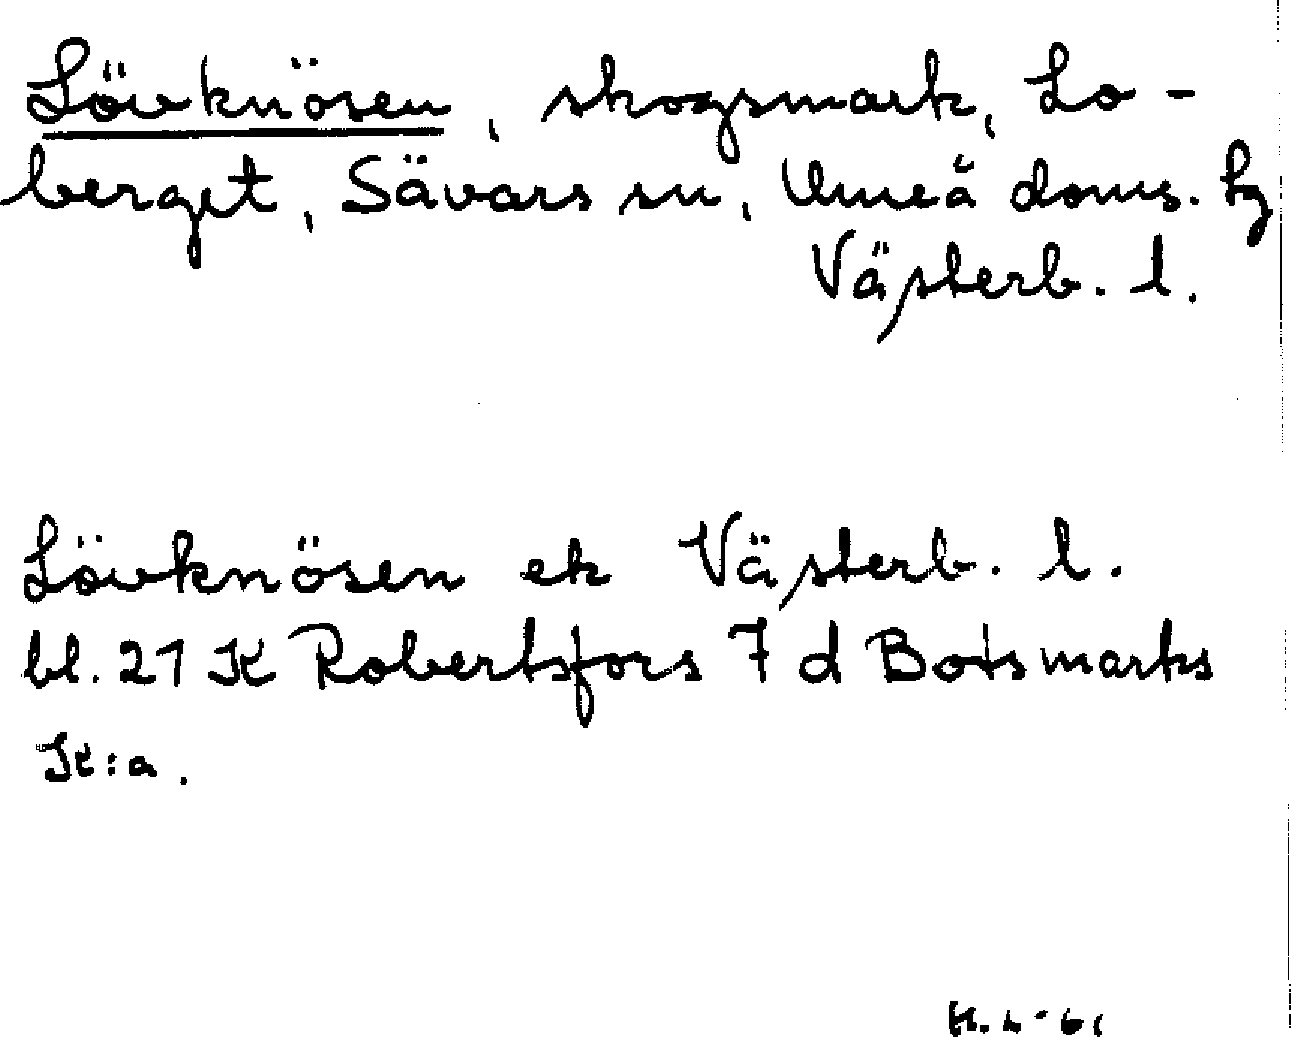 Lövknösen, skogsmark, Lo-
berget, Sävars sn, Umeå doms. hg
Västerb. l.
Lövknösen ek Västerb. l.
bl. 21 K Robertsfors 7 d Botsmarks
K:a.